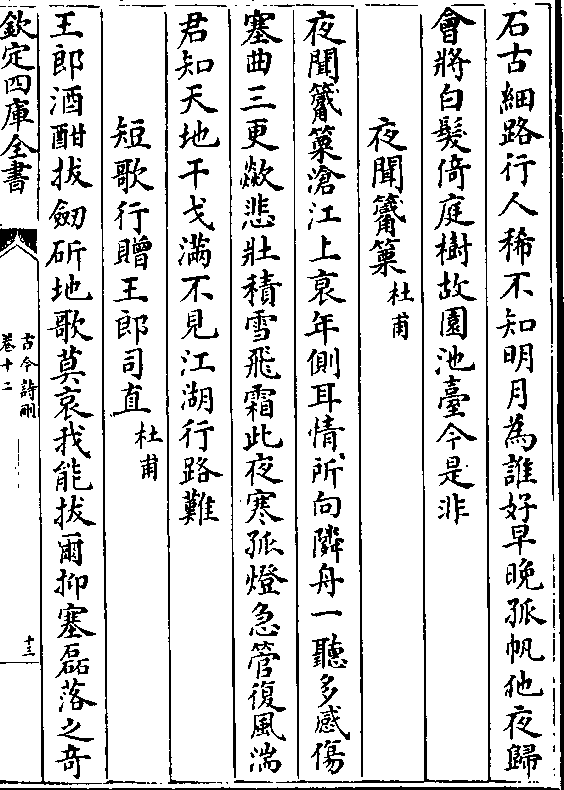 石古細路行人稀不知明月為誰好早晚孤帆他夜歸
會將白髮倚庭樹故園池臺今是非
夜聞觱篥杜甫
夜聞觱篥滄江上衰年側耳情所向隣舟一聽多感傷
塞曲三更歘悲壯積雪飛霜此夜寒孤燈急管復風湍
君知天地干戈滿不見江湖行路難
短歌行贈王郎司直杜甫
王郎酒酣拔劒斫地歌莫哀我能拔爾抑塞磊落之奇
欽定四庫全書
古今詩刪
卷十二
十三